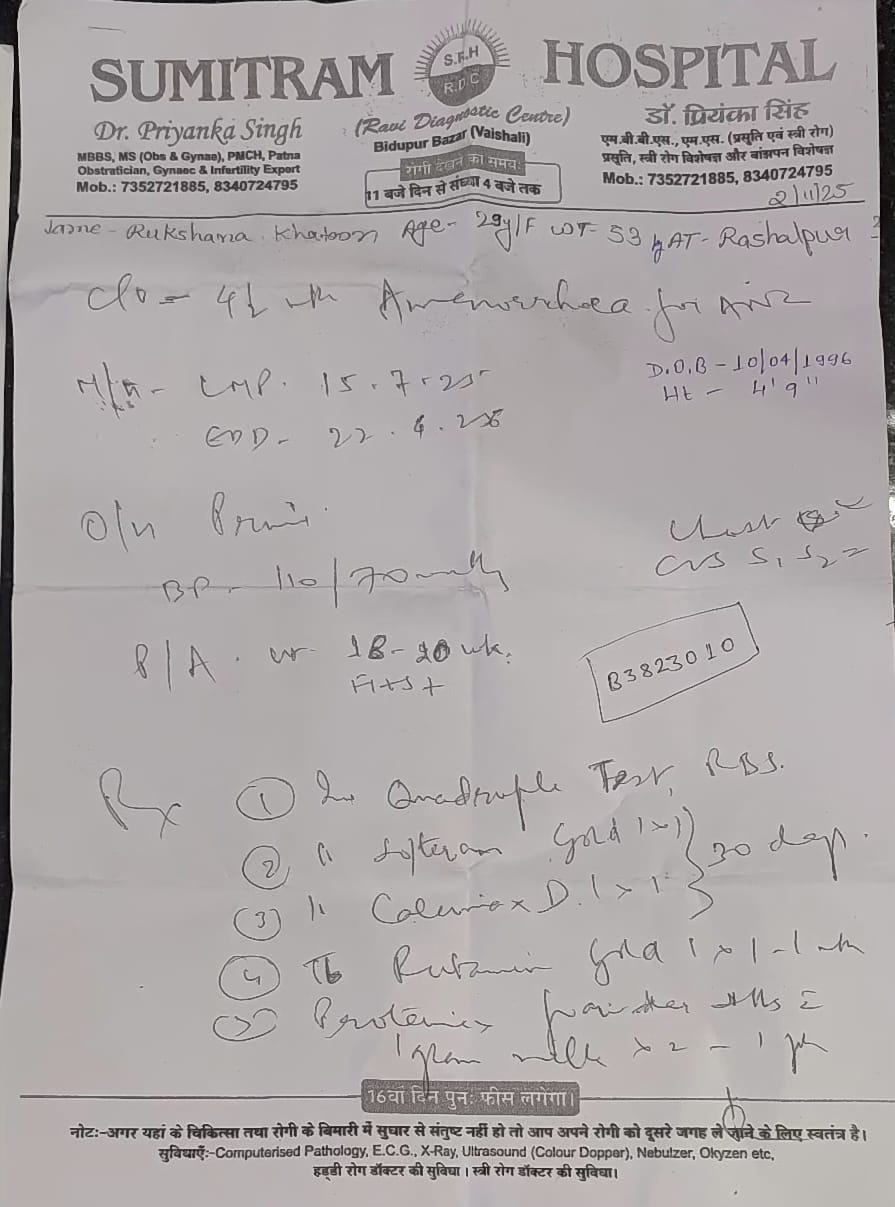 SUMITRAM HOSPITAL
S.R.H
R.D.C
Dr. Priyanka Singh
MBBS, MS (Obs & Gynae), PMCH, Patna
Obstratician, Gynaec & Infertility Expert
Mob.: 7352721885, 8340724795
(Ravi Diagnostic Centre)
Bidupur Bazar (Vaishali)
रोगी देखने का समयः
11 बजे दिन से संध्या 4 बजे तक
डॉ. प्रियंका सिंह
एम.बी.बी.एस., एम.एस. (प्रसुति एवं स्त्री रोग)
प्रसुति, स्त्री रोग विशेषज्ञ और बांझपन विशेषज्ञ
Mob.: 7352721885, 8340724795
2/11/25
Name - Rukshana Khatoon Age - 29y/F WT - 53 kg AT - Rashalpur
C/o = 4½ mth Amenorrhoea for ANC
D.O.B - 10/04/1996
Ht - 4'9"
M/H - LMP. 15.7.25
EDD - 22.4.26
BP - 110/70 mmHg
Chest
CVS S1 S2
P/A. ut- 18-20 wk.
B3823010
Rx
① Quadruple Test, RBS.
② Gold 1x1
③ D. 1x1 } 30 days.
④ Tb Gold 1x1 - 1 mth
⑤ powder
milk x 2 -
16वां दिन पुनः फीस लगेगा।
नोटः-अगर यहां के चिकित्सा तथा रोगी के बिमारी में सुधार से संतुष्ट नहीं हो तो आप अपने रोगी को दूसरे जगह ले जाने के लिए स्वतंत्र है।
सुविधाएँः-Computerised Pathology, E.C.G., X-Ray, Ultrasound (Colour Dopper), Nebulzer, Okyzen etc,
हड्डी रोग डॉक्टर की सुविधा। स्त्री रोग डॉक्टर की सुविधा।